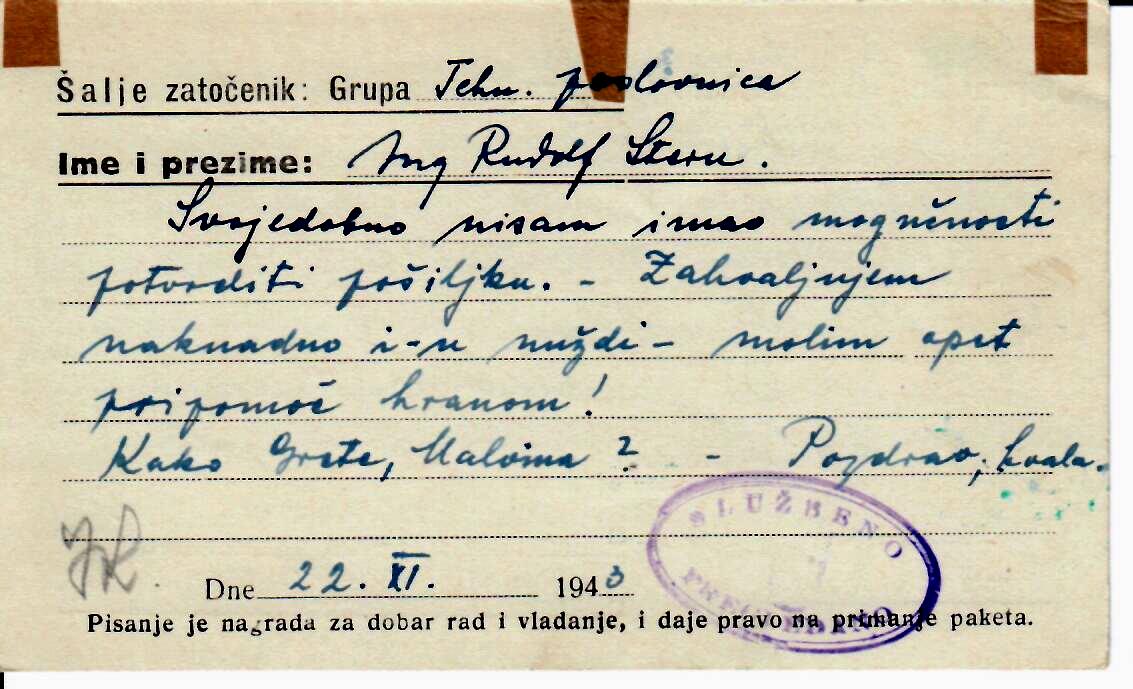 Šalje zatočenik: Grupa Tehn. poslovnica
Ime i prezime: Ing Rudolf Stern.
Svojedobno nisam imao mogućnosti
potvrditi pošiljku. – Zahvaljujem
naknadno i–u nuždi – molim opet
pripomoć hranom!
Kako Grete, Malvina? – Pozdrav, hvala.
SLUŽBENO
Dne 22. XI. 1943
Pisanje je nagrada za dobar rad i vladanje, i daje pravo na primanje paketa.